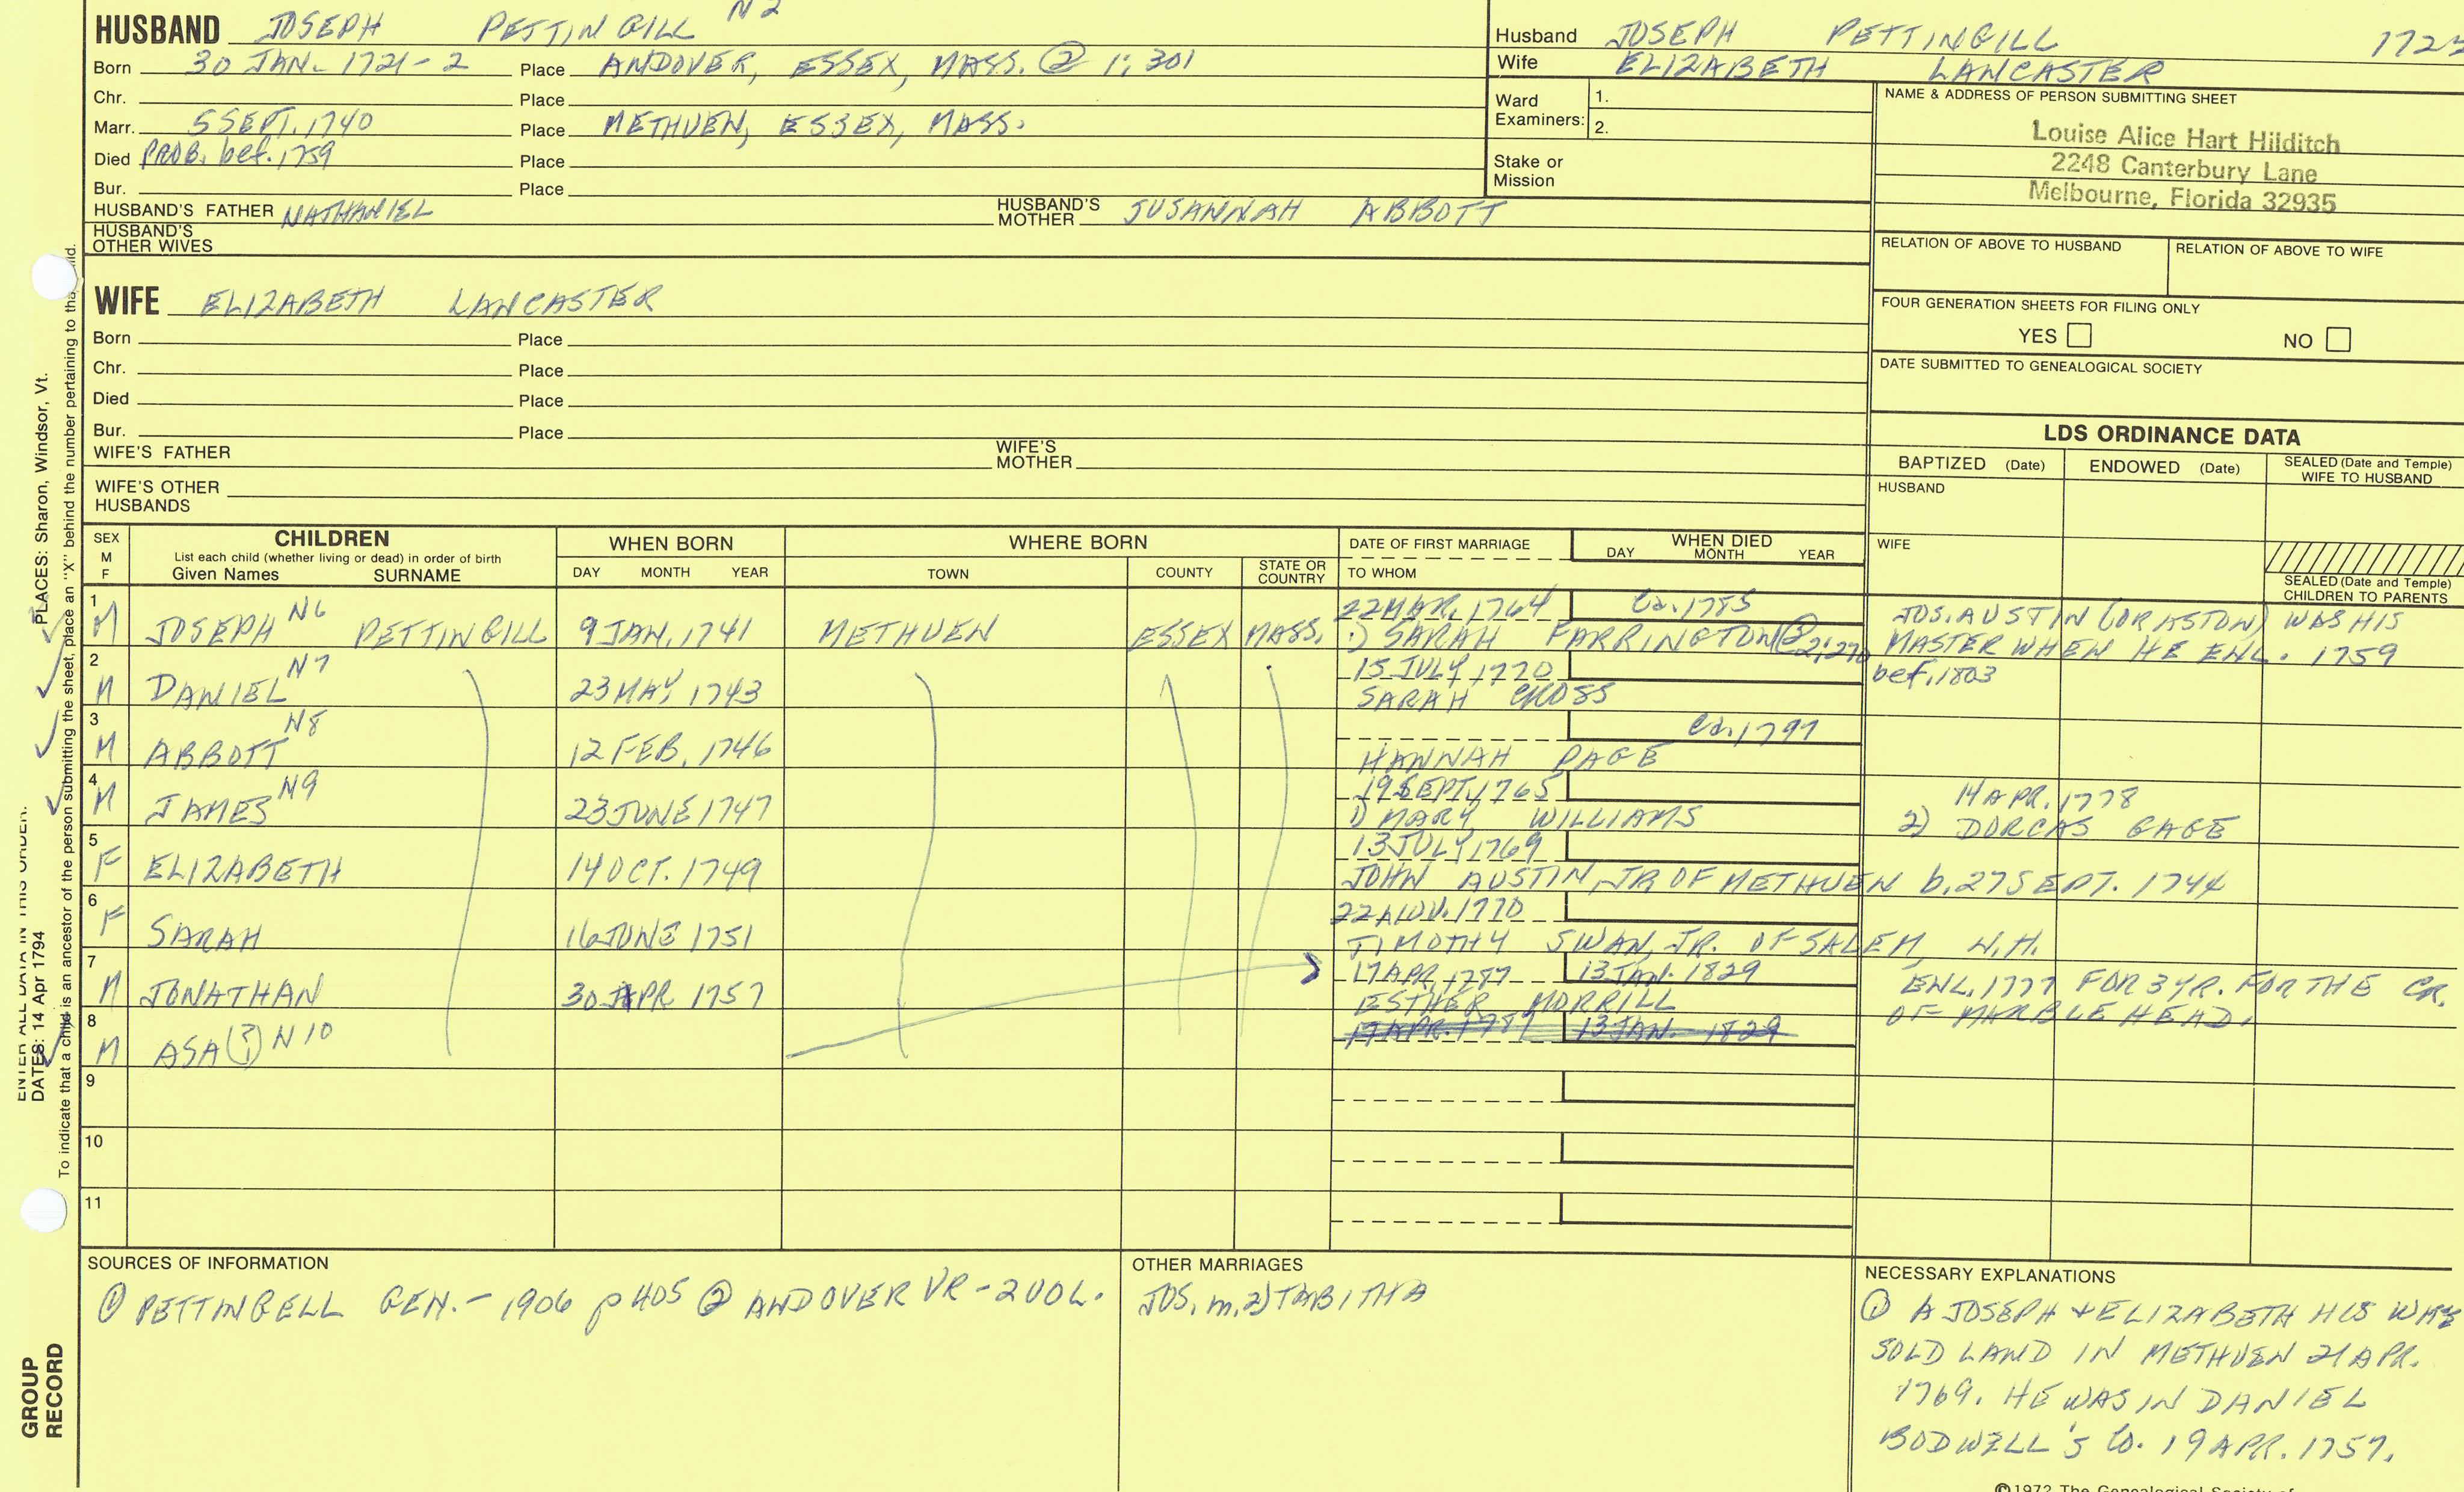 HUSBAND JOSEPH PETTINGILL N2
Born 30 JAN. 1721-2 Place ANDOVER, ESSEX, MASS. @ 1; 301
Chr. Place
Marr. 5 SEPT. 1740 Place METHUEN, ESSEX, MASS.
Died PROB. bef. 1759 Place
Bur. Place
HUSBAND'S FATHER NATHANIEL HUSBAND'S MOTHER SUSANNAH ABBOTT
HUSBAND'S OTHER WIVES
Husband JOSEPH PETTINGILL
Wife ELIZABETH LANCASTER
Ward Examiners: 1.
2.
Stake or Mission
NAME & ADDRESS OF PERSON SUBMITTING SHEET
Louise Alice Hart Hilditch
2248 Canterbury Lane
Melbourne, Florida 32935
RELATION OF ABOVE TO HUSBAND RELATION OF ABOVE TO WIFE
FOUR GENERATION SHEETS FOR FILING ONLY
YES NO
DATE SUBMITTED TO GENEALOGICAL SOCIETY
WIFE ELIZABETH LANCASTER
Born Place
Chr. Place
Died Place
Bur. Place
WIFE'S FATHER WIFE'S MOTHER
WIFE'S OTHER HUSBANDS
LDS ORDINANCE DATA
BAPTIZED (Date) ENDOWED (Date) SEALED (Date and Temple) WIFE TO HUSBAND
HUSBAND
WIFE
SEALED (Date and Temple) CHILDREN TO PARENTS
SEX M F
CHILDREN
List each child (whether living or dead) in order of birth
Given Names SURNAME
WHEN BORN
DAY MONTH YEAR
WHERE BORN
TOWN COUNTY STATE OR COUNTRY
DATE OF FIRST MARRIAGE
TO WHOM
WHEN DIED
DAY MONTH YEAR
1 22 MAR. 1764 Ca. 1785 JOS. AUSTIN (OR ASTON) WAS HIS
M JOSEPH N6 PETTINGILL 9 JAN. 1741 METHUEN ESSEX MASS. 1) SARAH FARRINGTON @ 2; 270 MASTER WHEN HE ENL. 1759
2 15 JULY 1770 bef. 1803
M DANIEL N7 23 MAY, 1743 SARAH CROSS
3 Ca. 1797
M ABBOTT N8 12 FEB. 1746 HANNAH PAGE
4 19 SEPT. 1765 14 APR. 1778
M JAMES N9 23 JUNE 1747 1) MARY WILLIAMS 2) DORCAS GAGE
5 13 JULY 1769
F ELIZABETH 14 OCT. 1749 JOHN AUSTIN, JR OF METHUEN b. 27 SEPT. 1744
6 22 NOV. 1770
F SARAH 16 JUNE 1751 TIMOTHY SWAN, JR. OF SALEM, N.H.
7 17 APR. 1787 13 JAN. 1829 ENL. 1777 FOR 3 YR. FOR THE CR.
M JONATHAN 30 APR 1757 ESTHER MORRILL OF MARBLEHEAD.
8 17 APR. 1787 13 JAN. 1829
M ASA (?) N10
9
10
11
SOURCES OF INFORMATION
① PETTINGELL GEN. - 1906 p 405 ② ANDOVER VR - 2 VOL.
OTHER MARRIAGES
JOS. m. 2) TABITHA
NECESSARY EXPLANATIONS
① A JOSEPH + ELIZABETH HIS
SOLD LAND IN METHUEN 21 APR.
1769. HE WAS IN DANIEL
BODWELL'S Co. 19 APR. 1757.
©1972 The Genealogical Society of
PLACES: Sharon, Windsor, Vt.
ENTER ALL DATA IN THIS ORDER:
DATES: 14 Apr 1794
To indicate that a child is an ancestor of the person submitting the sheet, place an "X" behind the number pertaining to that child.
GROUP
RECORD